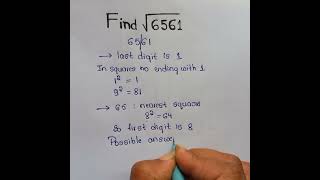 Find √6561
65|61
→ last digit is 1
In squares no ending with 1
1² = 1
9² = 81
→ 65 : nearest square
8² = 64
So first digit is 8
Possible answe